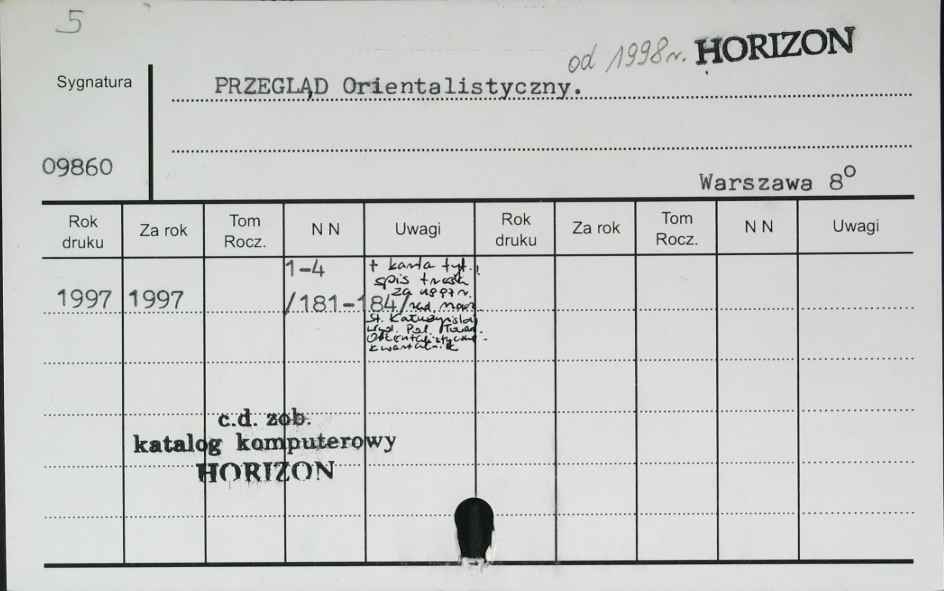 5
od 1998r. HORIZON
Sygnatura
PRZEGLĄD Orientalistyczny.
09860
Warszawa 8°
Rok druku Za rok Tom Rocz. N N Uwagi Rok druku Za rok Tom Rocz. N N Uwagi
1-4 + karta tyt.,
spis treści
za 1997 r.
1997 1997 /181-184/
St. Kałużyński
Pol. Towarz.
Orientalistyczne.
kwartalnik
c.d. zob.
katalog komputerowy
HORIZON